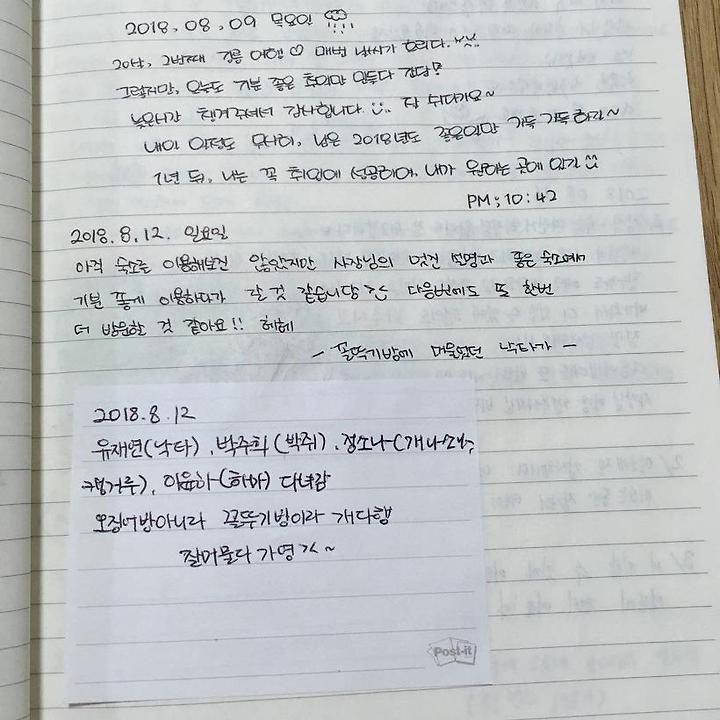 2018. 08. 09 목요일
20살, 그 번째 강릉 여행♡ 매번 날씨가 흐리다.
그렇지만, 오늘도 기분 좋은 추억만 만들다 간당!
늦은시간 챙겨주셔서 감사합니다 :) 잘 쉬다가요~
내일 일정도 무사히, 남은 2018년도 좋은일만 가득 가득하길~
1년 뒤, 나는 꼭 취업에 성공하여, 내가 원하는 곳에 있기
PM; 10:42
2018. 8. 12. 일요일
아직 숙소를 이용해보진 않았지만 사장님의 멋진 설명과 좋은 숙소에서
기분 좋게 이용하다가 갈 것 같습니당 ㅎㅎ 다음번에도 또 한번
더 방문할 것 같아요!! 헤헤
- 꼴뚜기방에 머물렀던 낙타가 -
2018. 8. 12
유재연(낙타), 박주희(박쥐), 정소나(개나소나,
캥거루), 이윤하(하마) 다녀감
오징어방아니라 꼴뚜기방이라 개다행
잘머물다 가영 ㅈㅅ~
Post-it